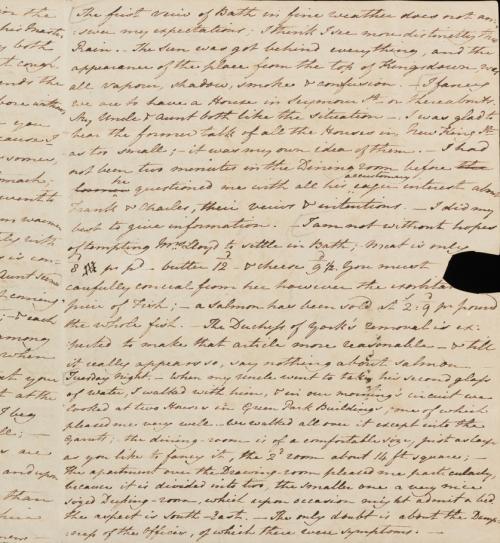 in the
both
cough
ends the
you
with
is con-
coming
; & each
among
when
at you
t at the
I beg
ll; —
s are
and upon
than
The first veiw of Bath in fine weather does not an-
swer my expectations; I think I see more distinctly thro'
Rain. — The Sun was got behind everything, and the
appearance of the place from the top of Kingsdown, was
all vapour, shadow, smoke & confusion. — I fancy
we are to have a House in Seymour St or thereabouts.
My Uncle & Aunt both like the situation —. I was glad to
hear the former talk of all the Houses in New King St
as too small; — it was my own idea of them. — I had
not been two minutes in the Dining-room before
he accustomary
questioned me with all his eager interest about
Frank & Charles, their veiws & intentions. — I did my
best to give information. — I am not without hopes
of tempting Mrs Lloyd to settle in Bath; — Meat is only
8d pr pd — butter 12d & cheese 9½d. You must
carefully conceal from her however the exorbitant
price of Fish; — a salmon has been sold at 2s: 9d pr pound
the whole fish. — The Duchess of York's removal is ex-
pected to make that article more reasonable — & till
it really appears so, say nothing about salmon. —
Tuesday Night. — When my Uncle went to take his second glass
of water, I walked with him, & in our morning's circuit we
looked at two Houses in Green Park Buildings, one of which
pleased me very well. — We walked all over it except into the
Garrets; — the dining-room is of a comfortable size, just as large
as you like to fancy it, the 2d room about 14 ft square; —
The apartment over the Drawing-room pleased me particularly,
because it is divided into two, the smaller one a very nice
sized Dressing-room, which upon occasion might admit a bed.
The aspect is South-East. — The only doubt is about the Damp-
ness of the Offices, of which there were symptoms. —